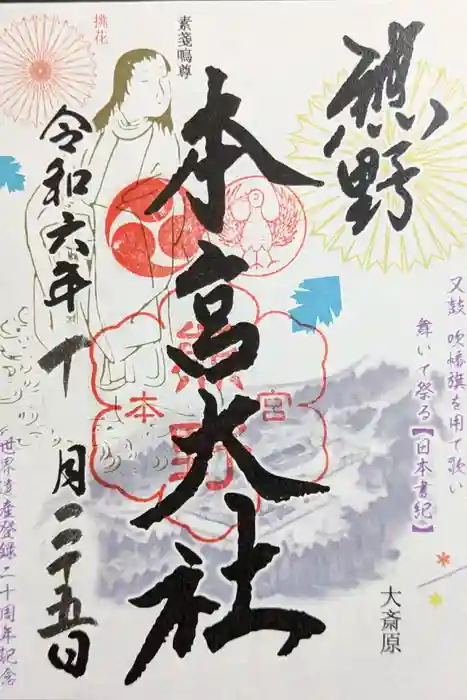 又鼓 吹 幡旗を用て歌い
舞いて祭る【日本書紀】
大斎原
熊野
本宮大社
素戔嗚尊
熊野
本宮
挑花
令和六年十月二十五日
世界遺産登録二十周年記念